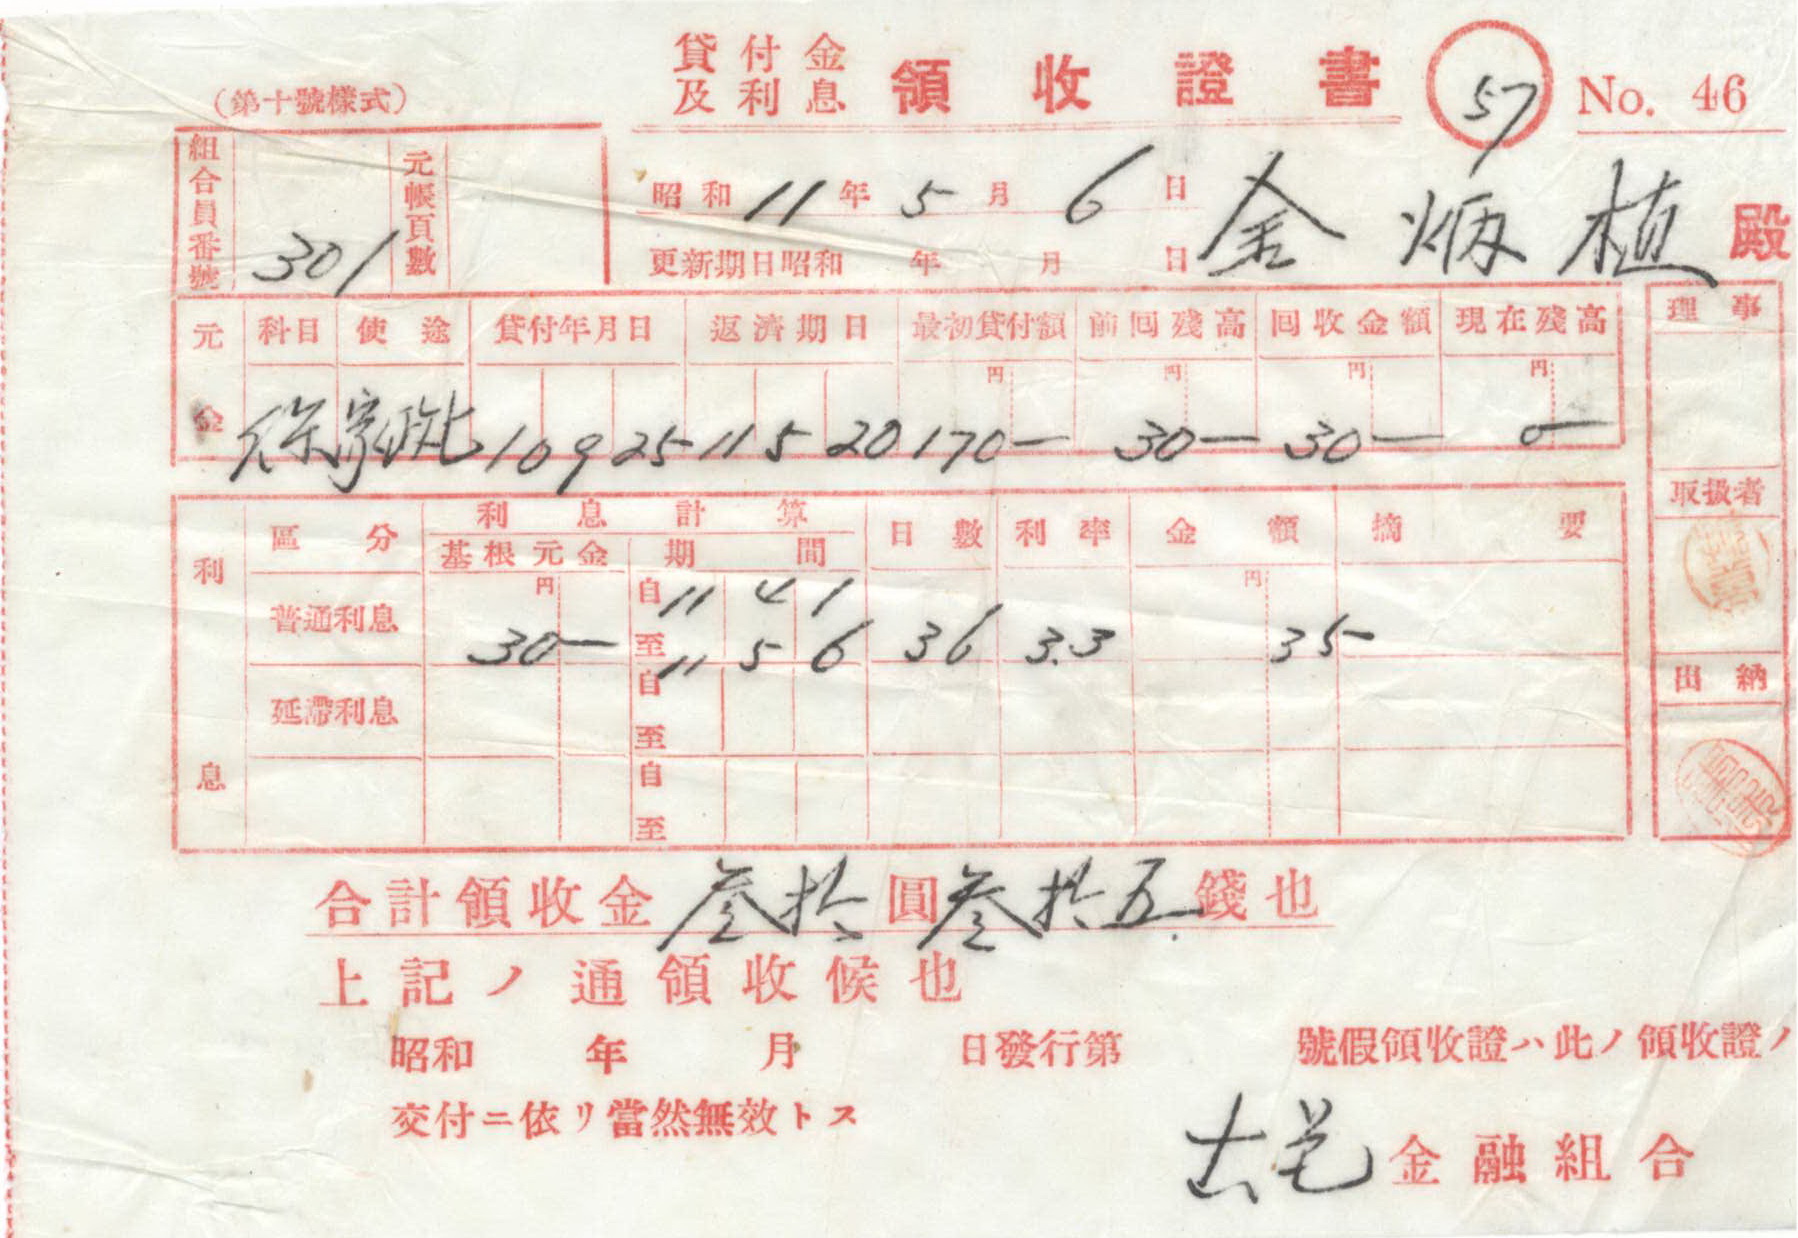 (第十號樣式)
貸付金
及利息
領收證書
57
No. 46
組合員番號 301 元帳頁數
昭和 11 年 5 月 6 日
更新期日昭和 年 月 日
金炳植殿
元金 科目 使途 貸付年月日 返濟期日 最初貸付額 前回殘高 回收金額 現在殘高
円 円 円 円
10 9 25 11 5 20 170— 30— 30— 0—
利息 區分 利息計算 日數 利率 金額 摘要
基根元金 期間
普通利息 円 30— 自 11 4 1 円
至 11 5 6 36 3.3 35
延滯利息 自
至
自
至
理事
取扱者
出納
合計領收金 叁拾 圓 叁拾五 錢也
上記ノ通領收候也
昭和 年 月 日發行第 號假領收證ハ此ノ領收證ノ
交付ニ依リ當然無效トス
金融組合